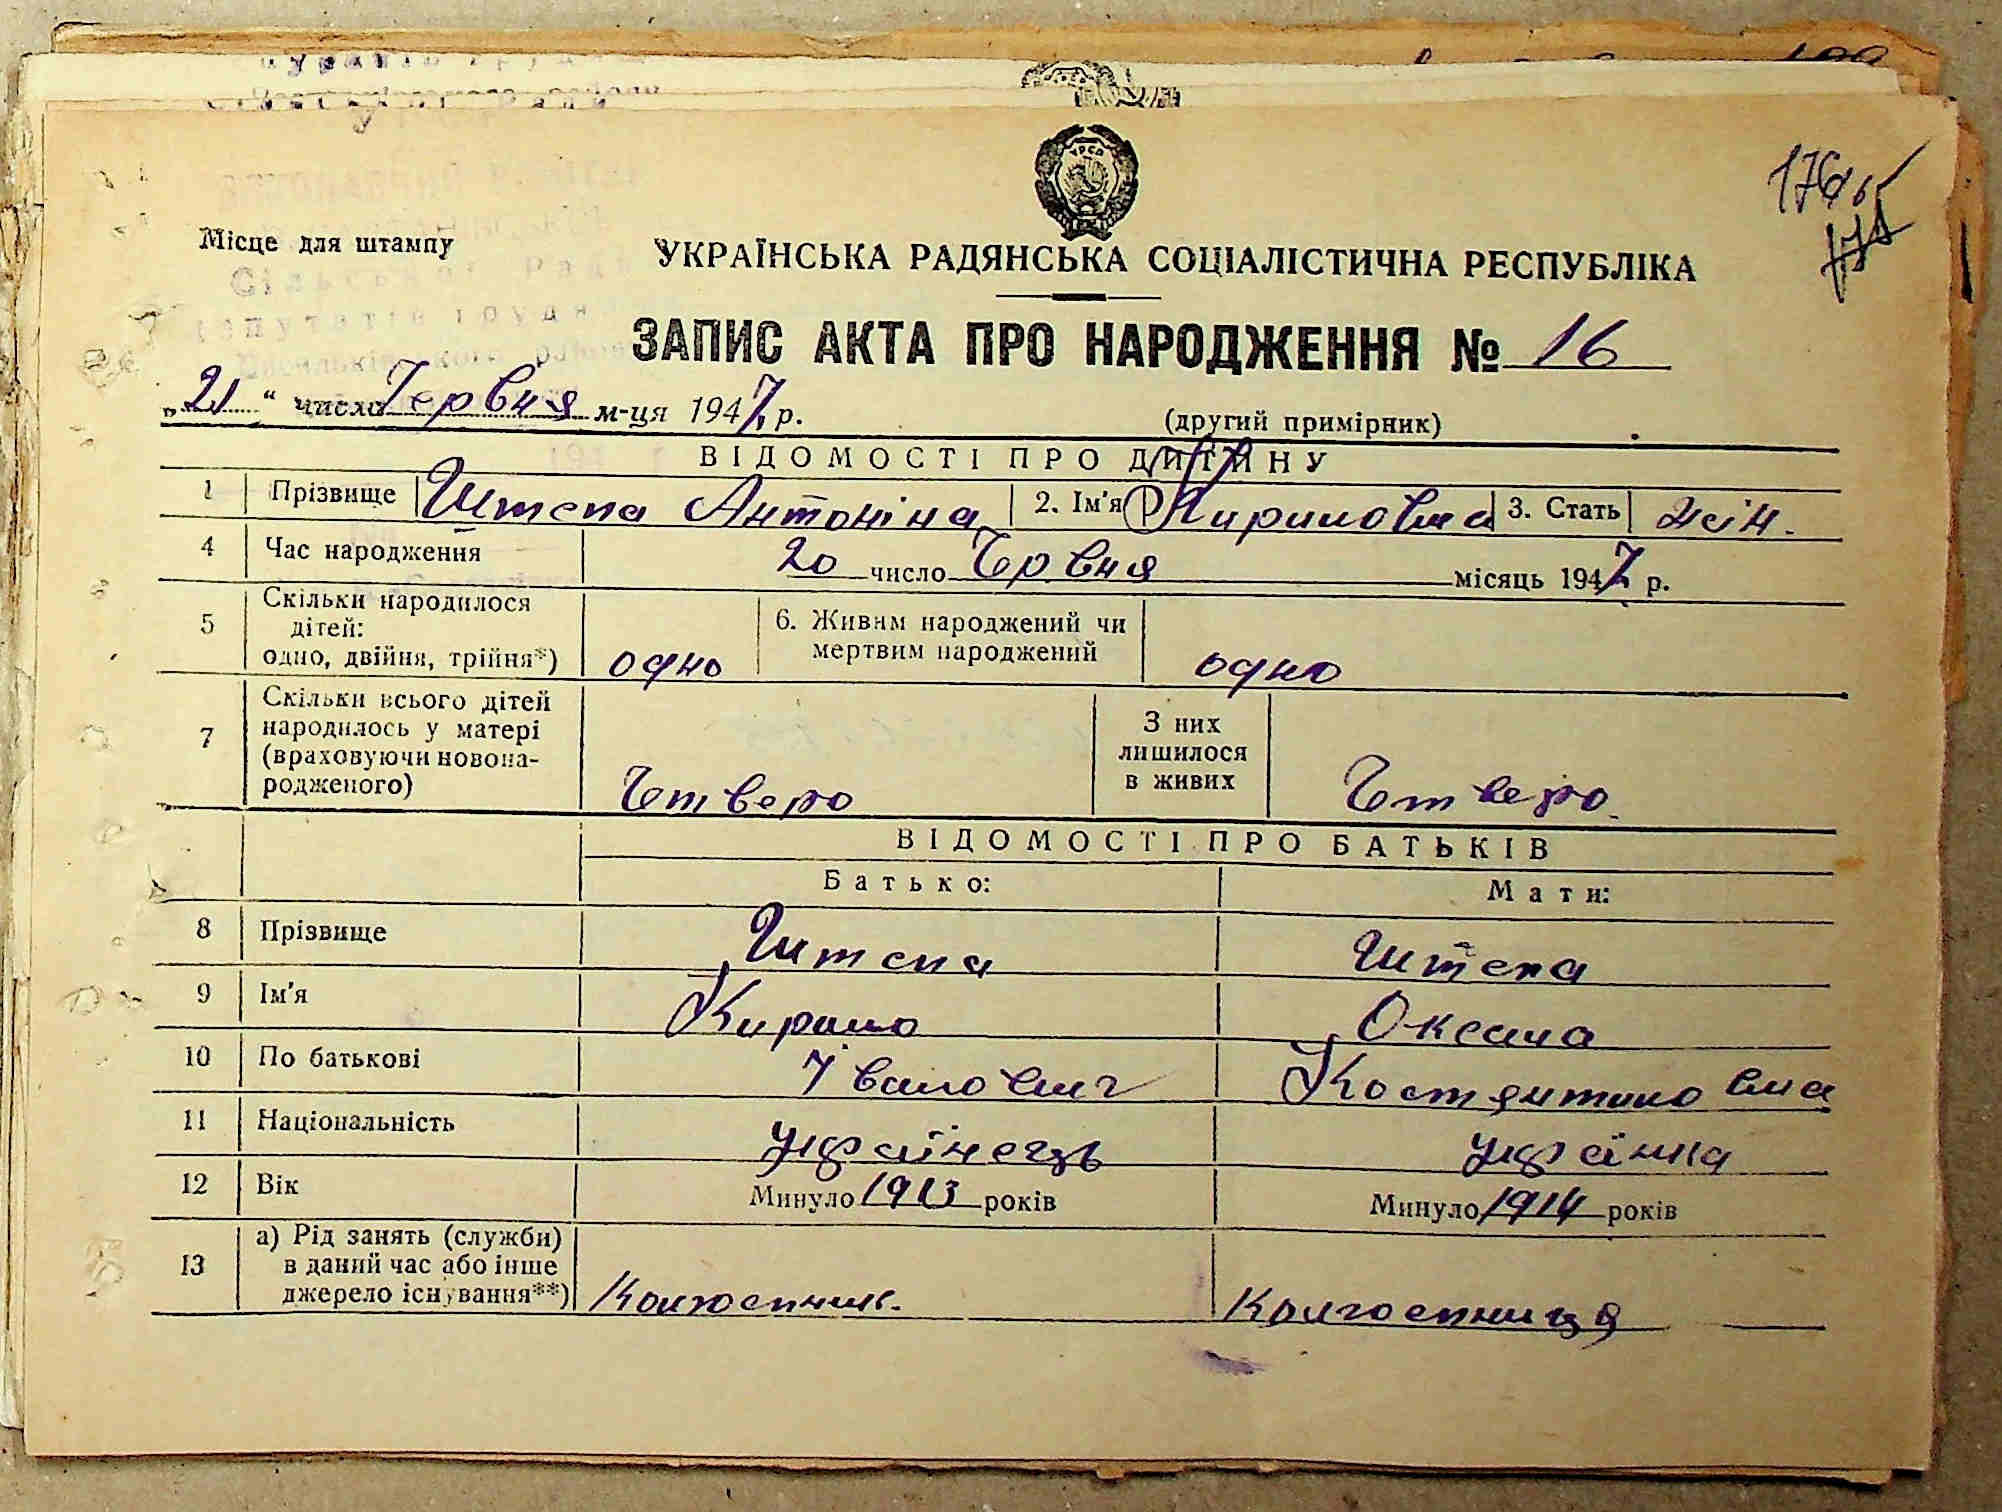 УРСР
Місце для штампу
УКРАЇНСЬКА РАДЯНСЬКА СОЦІАЛІСТИЧНА РЕСПУБЛІКА
ЗАПИС АКТА ПРО НАРОДЖЕННЯ № 16
„21“ число Червня м-ця 1947 р.
(другий примірник)
ВІДОМОСТІ ПРО ДИТИНУ
1 Прізвище Штепа Антоніна 2. Ім'я Кириловна 3. Стать жін.
4 Час народження 20 число Чрвня місяць 1947 р.
5 Скільки народилося дітей: одно, двійня, трійня*) одно 6. Живим народжений чи мертвим народжений одно
7 Скільки всього дітей народилось у матері (враховуючи новонародженого) Чтверо З них лишилося в живих Чтверо
ВІДОМОСТІ ПРО БАТЬКІВ
Батько: Мати:
8 Прізвище Штепа Штепа
9 Ім'я Кирило Оксана
10 По батькові Іванович Костянтиновна
11 Національність українець українка
12 Вік Минуло 1913 років Минуло 1914 років
13 а) Рід занять (служби) в даний час або інше джерело існування**) Колгоспник. Колгоспниця